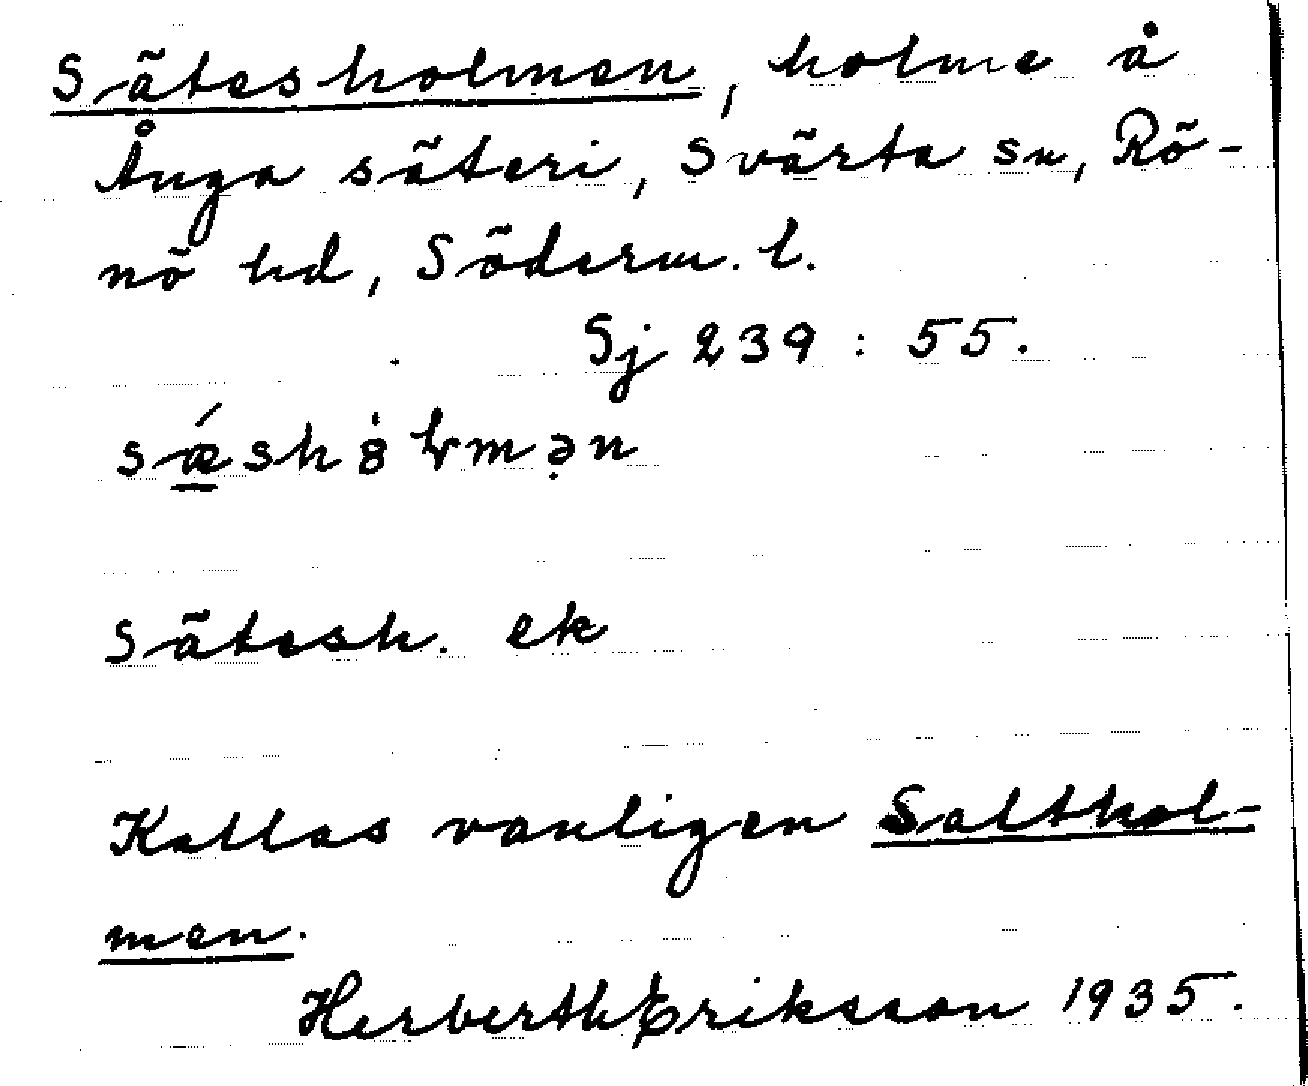 Sätesholmen, holme å
Ånga säteri, Svärta sn, Rö-
nö hd, Söderm. l.
Sj 239 : 55.
sǽsh
Sätesh. ek
Kallas vanligen Salthol-
men.
Herberth Eriksson 1935.